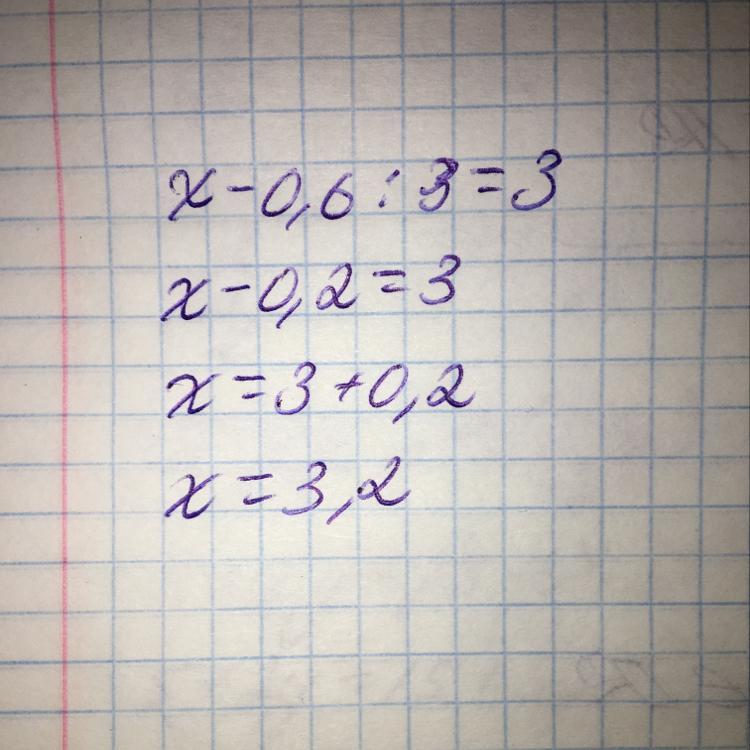 x-0,6:3=3
x-0,2=3
x=3+0,2
x=3,2